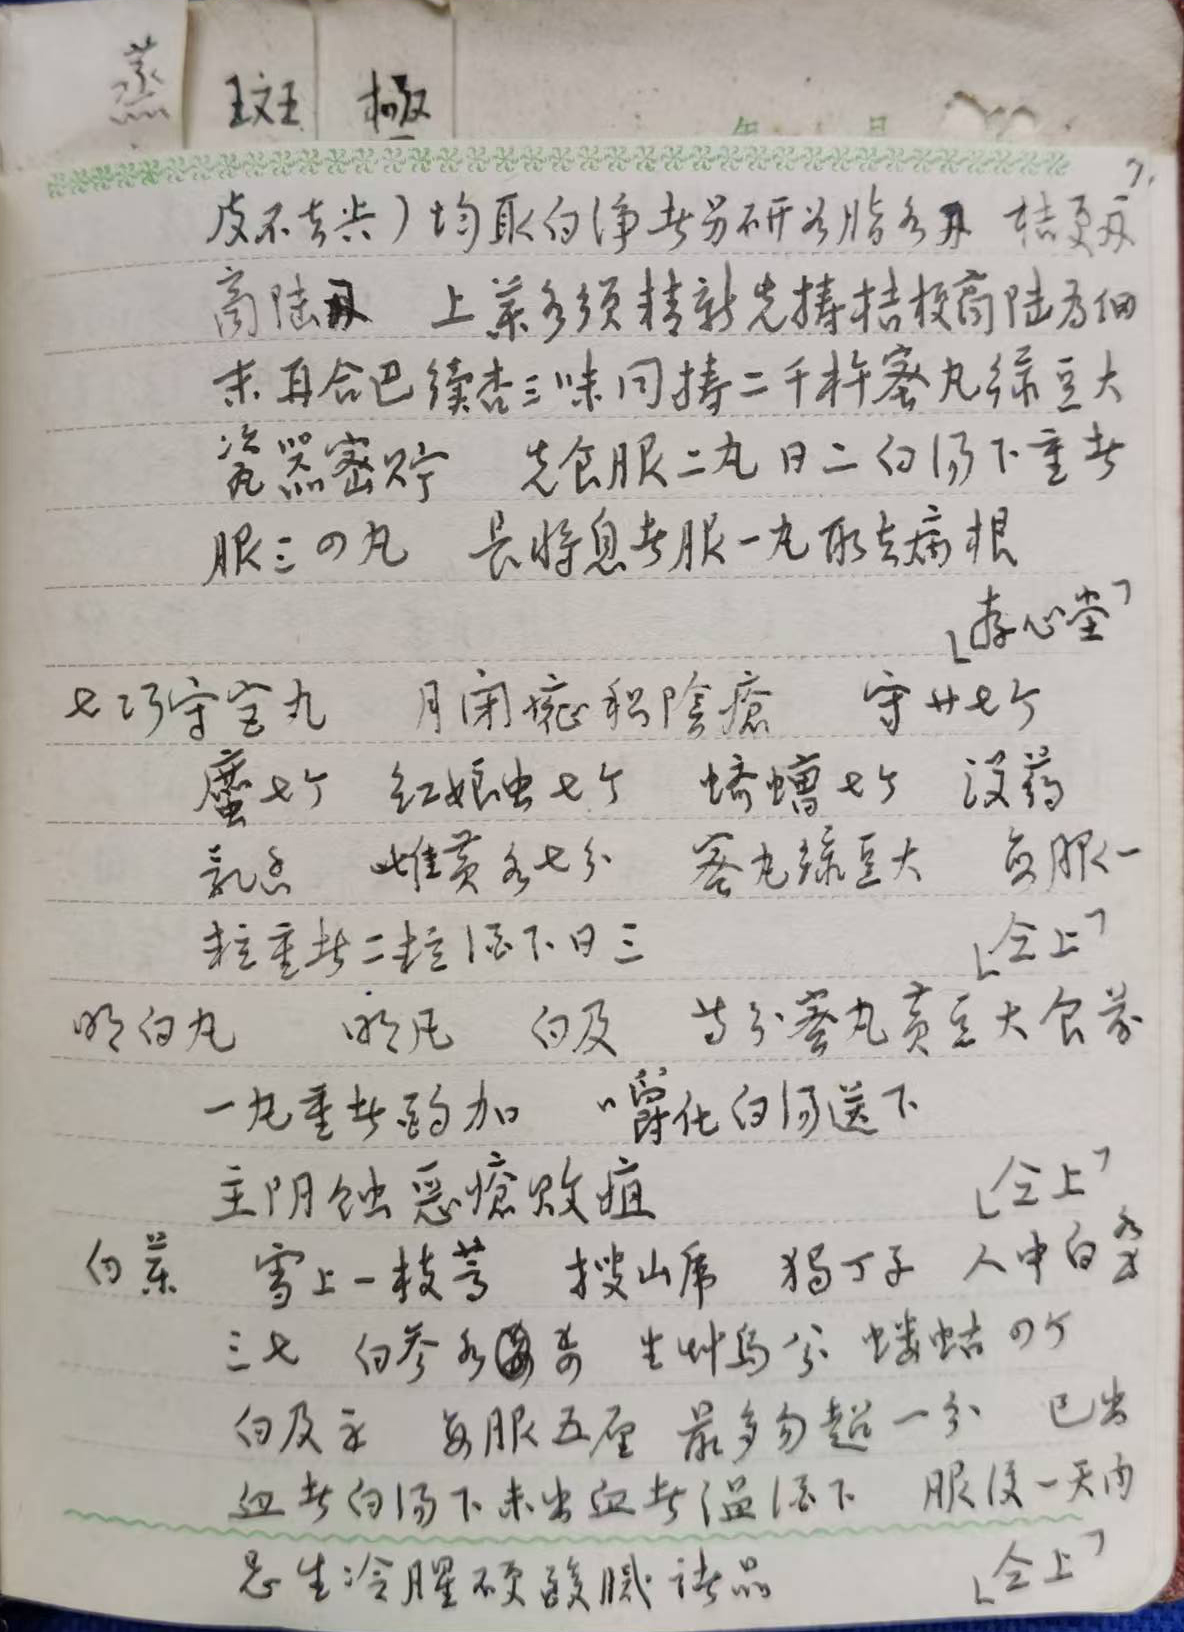 蒸 斑 極
年 月
7.
皮不去尖）均取白净者另研如脂各 桔更
商陆 上药各须精新先捣桔梗商陆为细
末再合巴续杏三味同捣二千杵蜜丸绿豆大
瓷器密贮 先食服二丸日二白汤下重者
服三四丸 长将息者服一丸取去病根
「存心堂」
七巧守宫丸 月闭癥积阴疮 守廿七个
䗪七个 红娘虫七个 蛴螬七个 没药
乳香 雌黄各七分 蜜丸绿豆大 每服一
粒重者二粒酒下日三 「仝上」
明白丸 明凡 白及 等分蜜丸黄豆大食前
一丸重者酌加 嚼化白汤送下
主阴蚀恶疮败疽 「仝上」
白药 雪上一枝蒿 搜山虎 独丁子 人中白各
三七 白参各 生艸乌 蝼蛄四个
白及 每服五厘 最多勿超一分 已出
血者白汤下未出血者温酒下 服后一天内
忌生冷腥硬酸腻诸品 「仝上」